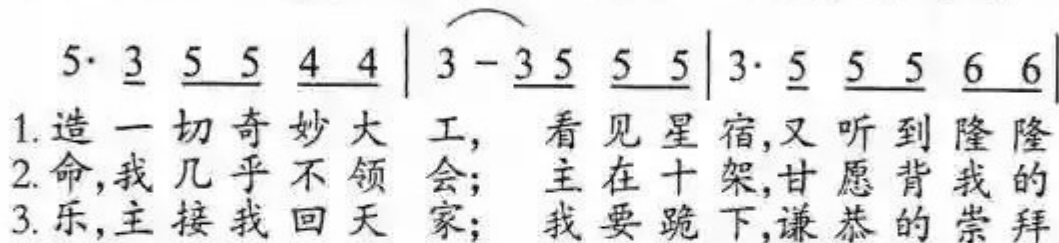 5· 3 5 5 4 4 | 3 – 3 5 5 5 | 3· 5 5 5 6 6 |
1. 造一切奇妙大工, 看见星宿,又听到隆隆
2. 命,我几乎不领会; 主在十架,甘愿背我的
3. 乐,主接我回天家; 我要跪下,谦恭的崇拜